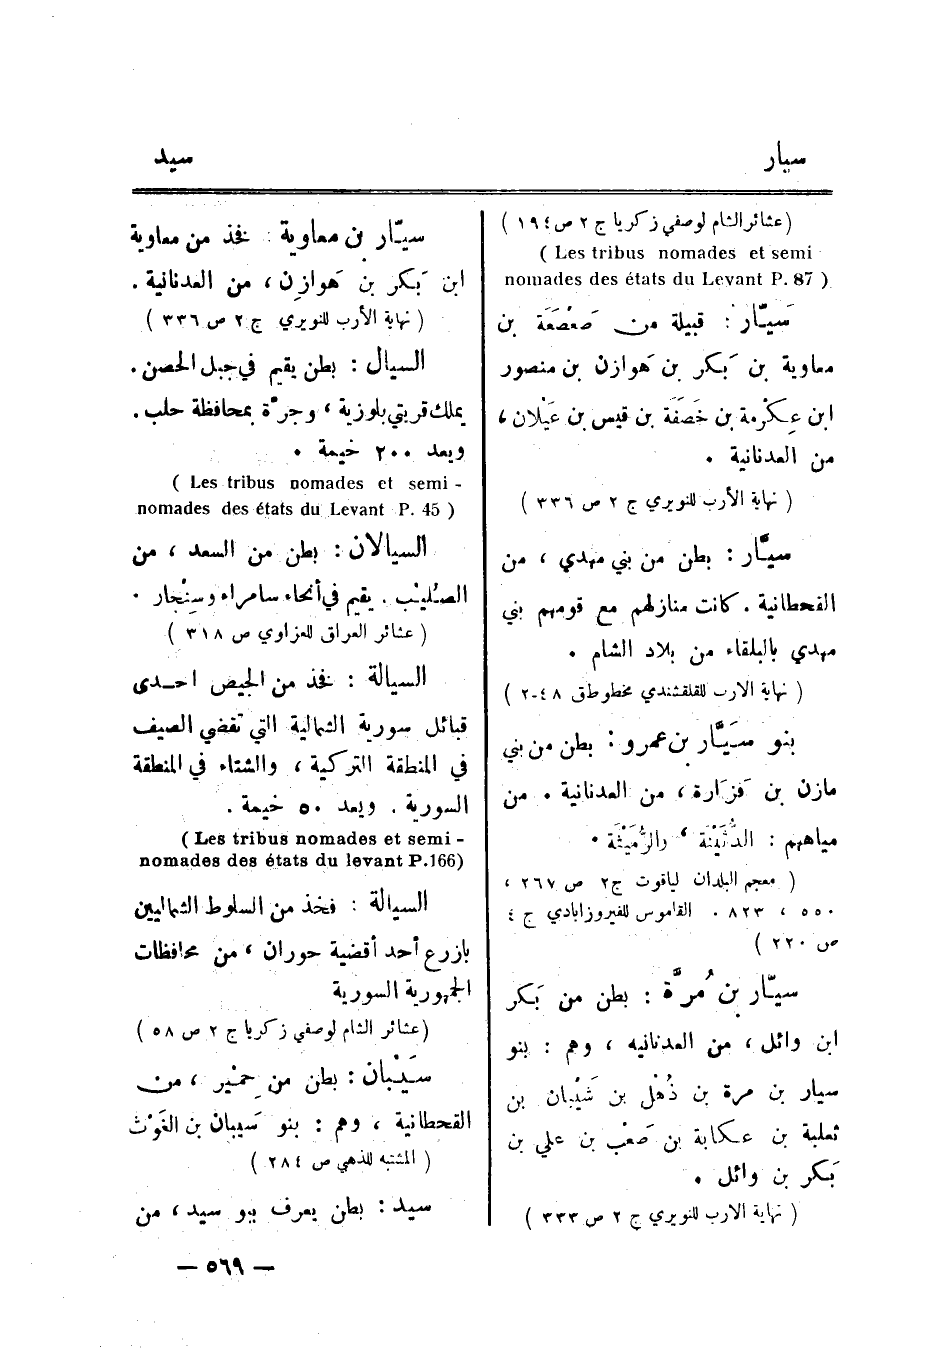 سيار
سيد
(عشائر الشام لوصفي زكريا ج ٢ ص ١٩٤)
( Les tribus nomades et semi
nomades des états du Levant P. 87 )
سَيّار : قبيلة من صَعْصَعَة بن
معاوية بن بَكر بن هَوازن بن منصور
ابن عِكْرمة بن خَصَفَة بن قيس بن عَيْلان ،
من العدنانية .
( نهاية الأرب للنويري ج ٢ ص ٣٣٦ )
سيَّار : بطن من بني مهدي ، من
القحطانية . كانت منازلهم مع قومهم بني
مهدي بالبلقاء من بلاد الشام .
( نهاية الارب للقلقشندي مخطوط ق ٤٨-٢ )
بنو سَيَّار بن عمرو : بطن من بني
مازن بن فَزَارة ، من العدنانية . من
مياههم : الدُّثَيْنَة ، والرُّمَيْثَة .
( معجم البلدان لياقوت ج٢ ص ٢٦٧ ،
٥٥٠ ، ٨٢٣ . القاموس للفيروزابادي ج ٤
ص ٢٢٠ )
سيّار بن مُرَّة : بطن من بَكر
ابن وائل ، من العدنانيه ، وهم : بنو
سيار بن مرة بن ذُهْل بن شَيْبان بن
ثعلبة بن عكابة بن صَعْب بن علي بن
بَكر بن وائل .
( نهاية الارب للنويري ج ٢ ص ٣٣٣ )
سيّار بن معاوية : فخذ من معاوية
ابن بَكر بن هَوازن ، من العدنانية .
( نهاية الأرب للنويري ج ٢ ص ٣٣٦ )
السيال : بطن يقيم في جبل الحصن .
يملك قريتي بلوزية ، وجرّة بمحافظة حلب .
ويعد ٢٠٠ خيمة .
( Les tribus nomades et semi -
nomades des états du Levant P. 45 )
السيالان : بطن من السعد ، من
الصُلَيْب . يقيم في أنحاء سامراء وسِنْجار .
( عشائر العراق للعزاوي ص ٣١٨ )
السيالة : فخذ من الجيص احدى
قبائل سورية الشمالية التي تقضي الصيف
في المنطقة التركية ، والشتاء في المنطقة
السورية . ويعد ٥٠ خيمة .
( Les tribus nomades et semi -
nomades des états du levant P.166)
السيالة : فخذ من السلوط الشماليين
بازرع أحد أقضية حوران ، من محافظات
الجمهورية السورية
(عشائر الشام لوصفي زكريا ج ٢ ص ٥٨ )
سَيْبان : بطن من حِمْير ، من
القحطانية ، وهم : بنو سَيبان بن الغَوْث
( المشتبه للذهبي ص ٢٨٤ )
سيد : بطن يعرف ببو سيد ، من
— ٥٦٩ —